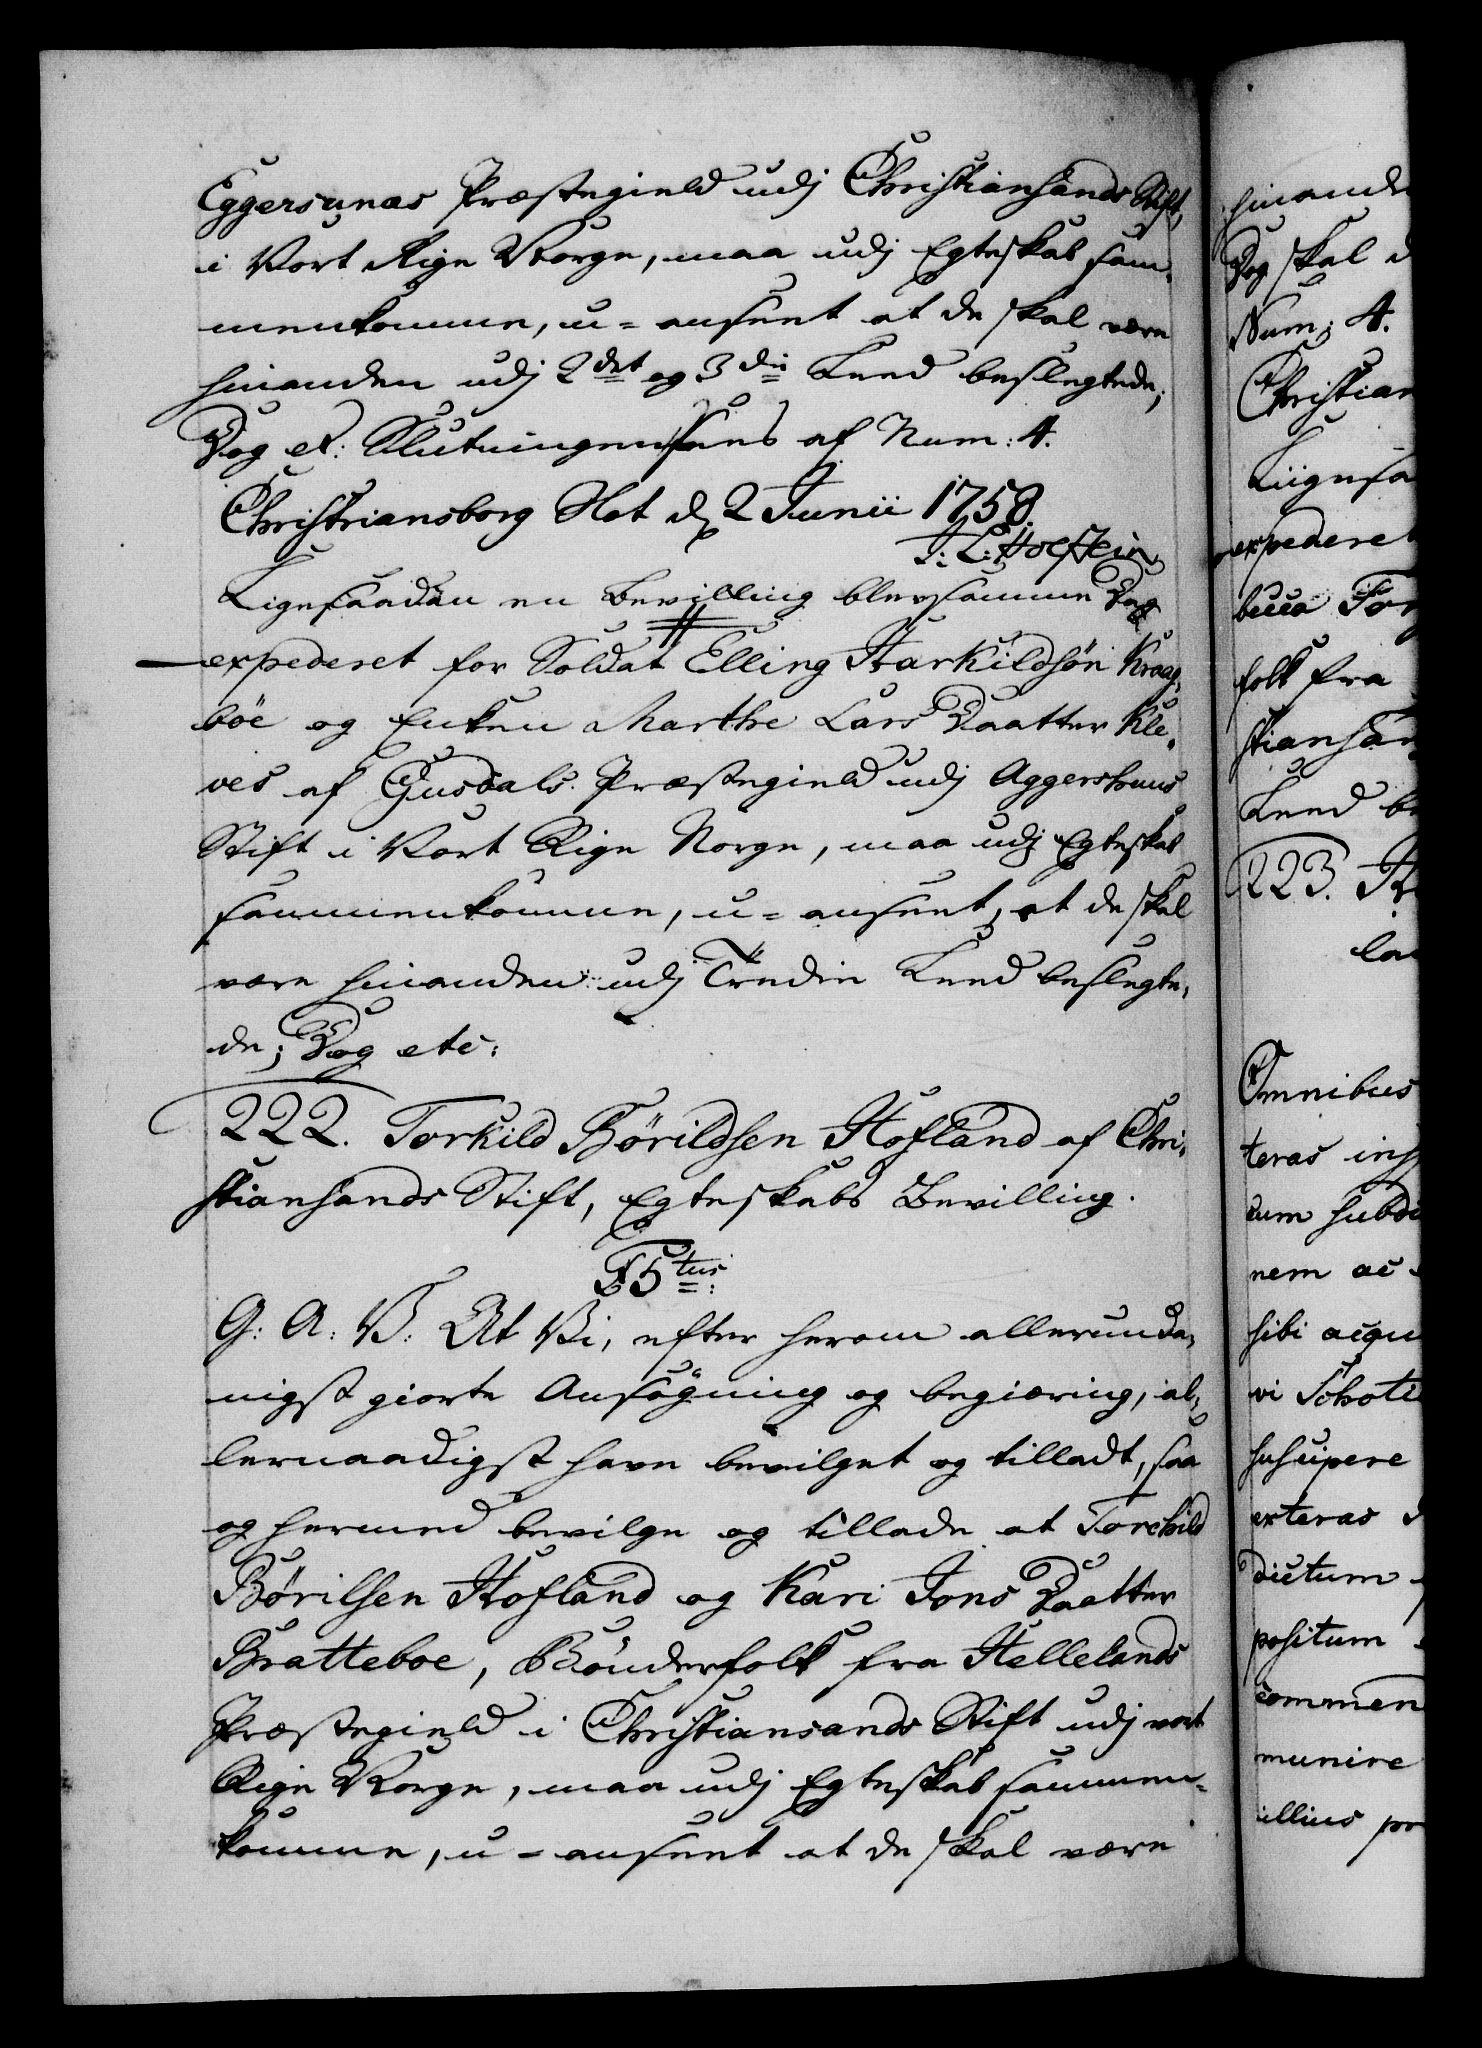 Eggersunds Præstegield udj Christiansands Stift,
i Vort Rige Norge, maa udj Egteskab sam-
menkomme, u-anseet at de skal være
hinanden udj 2det og 3die Leed beslegtede;
Dog &c: Slutningen som af Num: 4.
Christiansborg Slot d. 2 Junii 1758.
J: L: Holstein
Ligesaadan en Bevilling blev samme Dag
expederet for Soldat Elling Tharkildsön Kraag-
böe og Enken Marthe Lars Daatter Kle-
ves af Gusdals Præstegield udj Aggershuus
Stift i Vort Rige Norge, maa udj Egteskab
sammenkomme, u-anseet, at de skal
være hinanden udj Tredie Leed beslegte-
de; Dog etc:
222. Torkild Börildsen Hofland af Chri-
stiansands Stift, Egteskabs Bevilling.
F5tus
G: A: V: At Vi, efter herom allerunda-
nigst giorte Ansögning og begiæring, al-
lernaadigst have bevilget og tilladt, saa
og hermed bevilge og tillade at Torchild
Börilsen Hofland og Kari Jons Daatter
Bratteboe, Bönderfolk fra Hellelands
Præstegield i Christiansands Stift udj vort
Rige Norge, maa udj Egteskab sammen-
komme, u-anseet at de skal være
hinande
Dog skal
Num: 4.
Christian
Liigesa
expederet
becca Tor
folk fra
stiansan
Leed be
223.
Omnibus
teras
cum subdi
nem ac
sibi acqu
vi
suscipere
exteras
dictum
positum
commen
munire
illius por